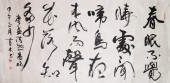 春眠不覺
曉處處聞
啼鳥夜
來風雨聲
花落知
多少
孟浩然